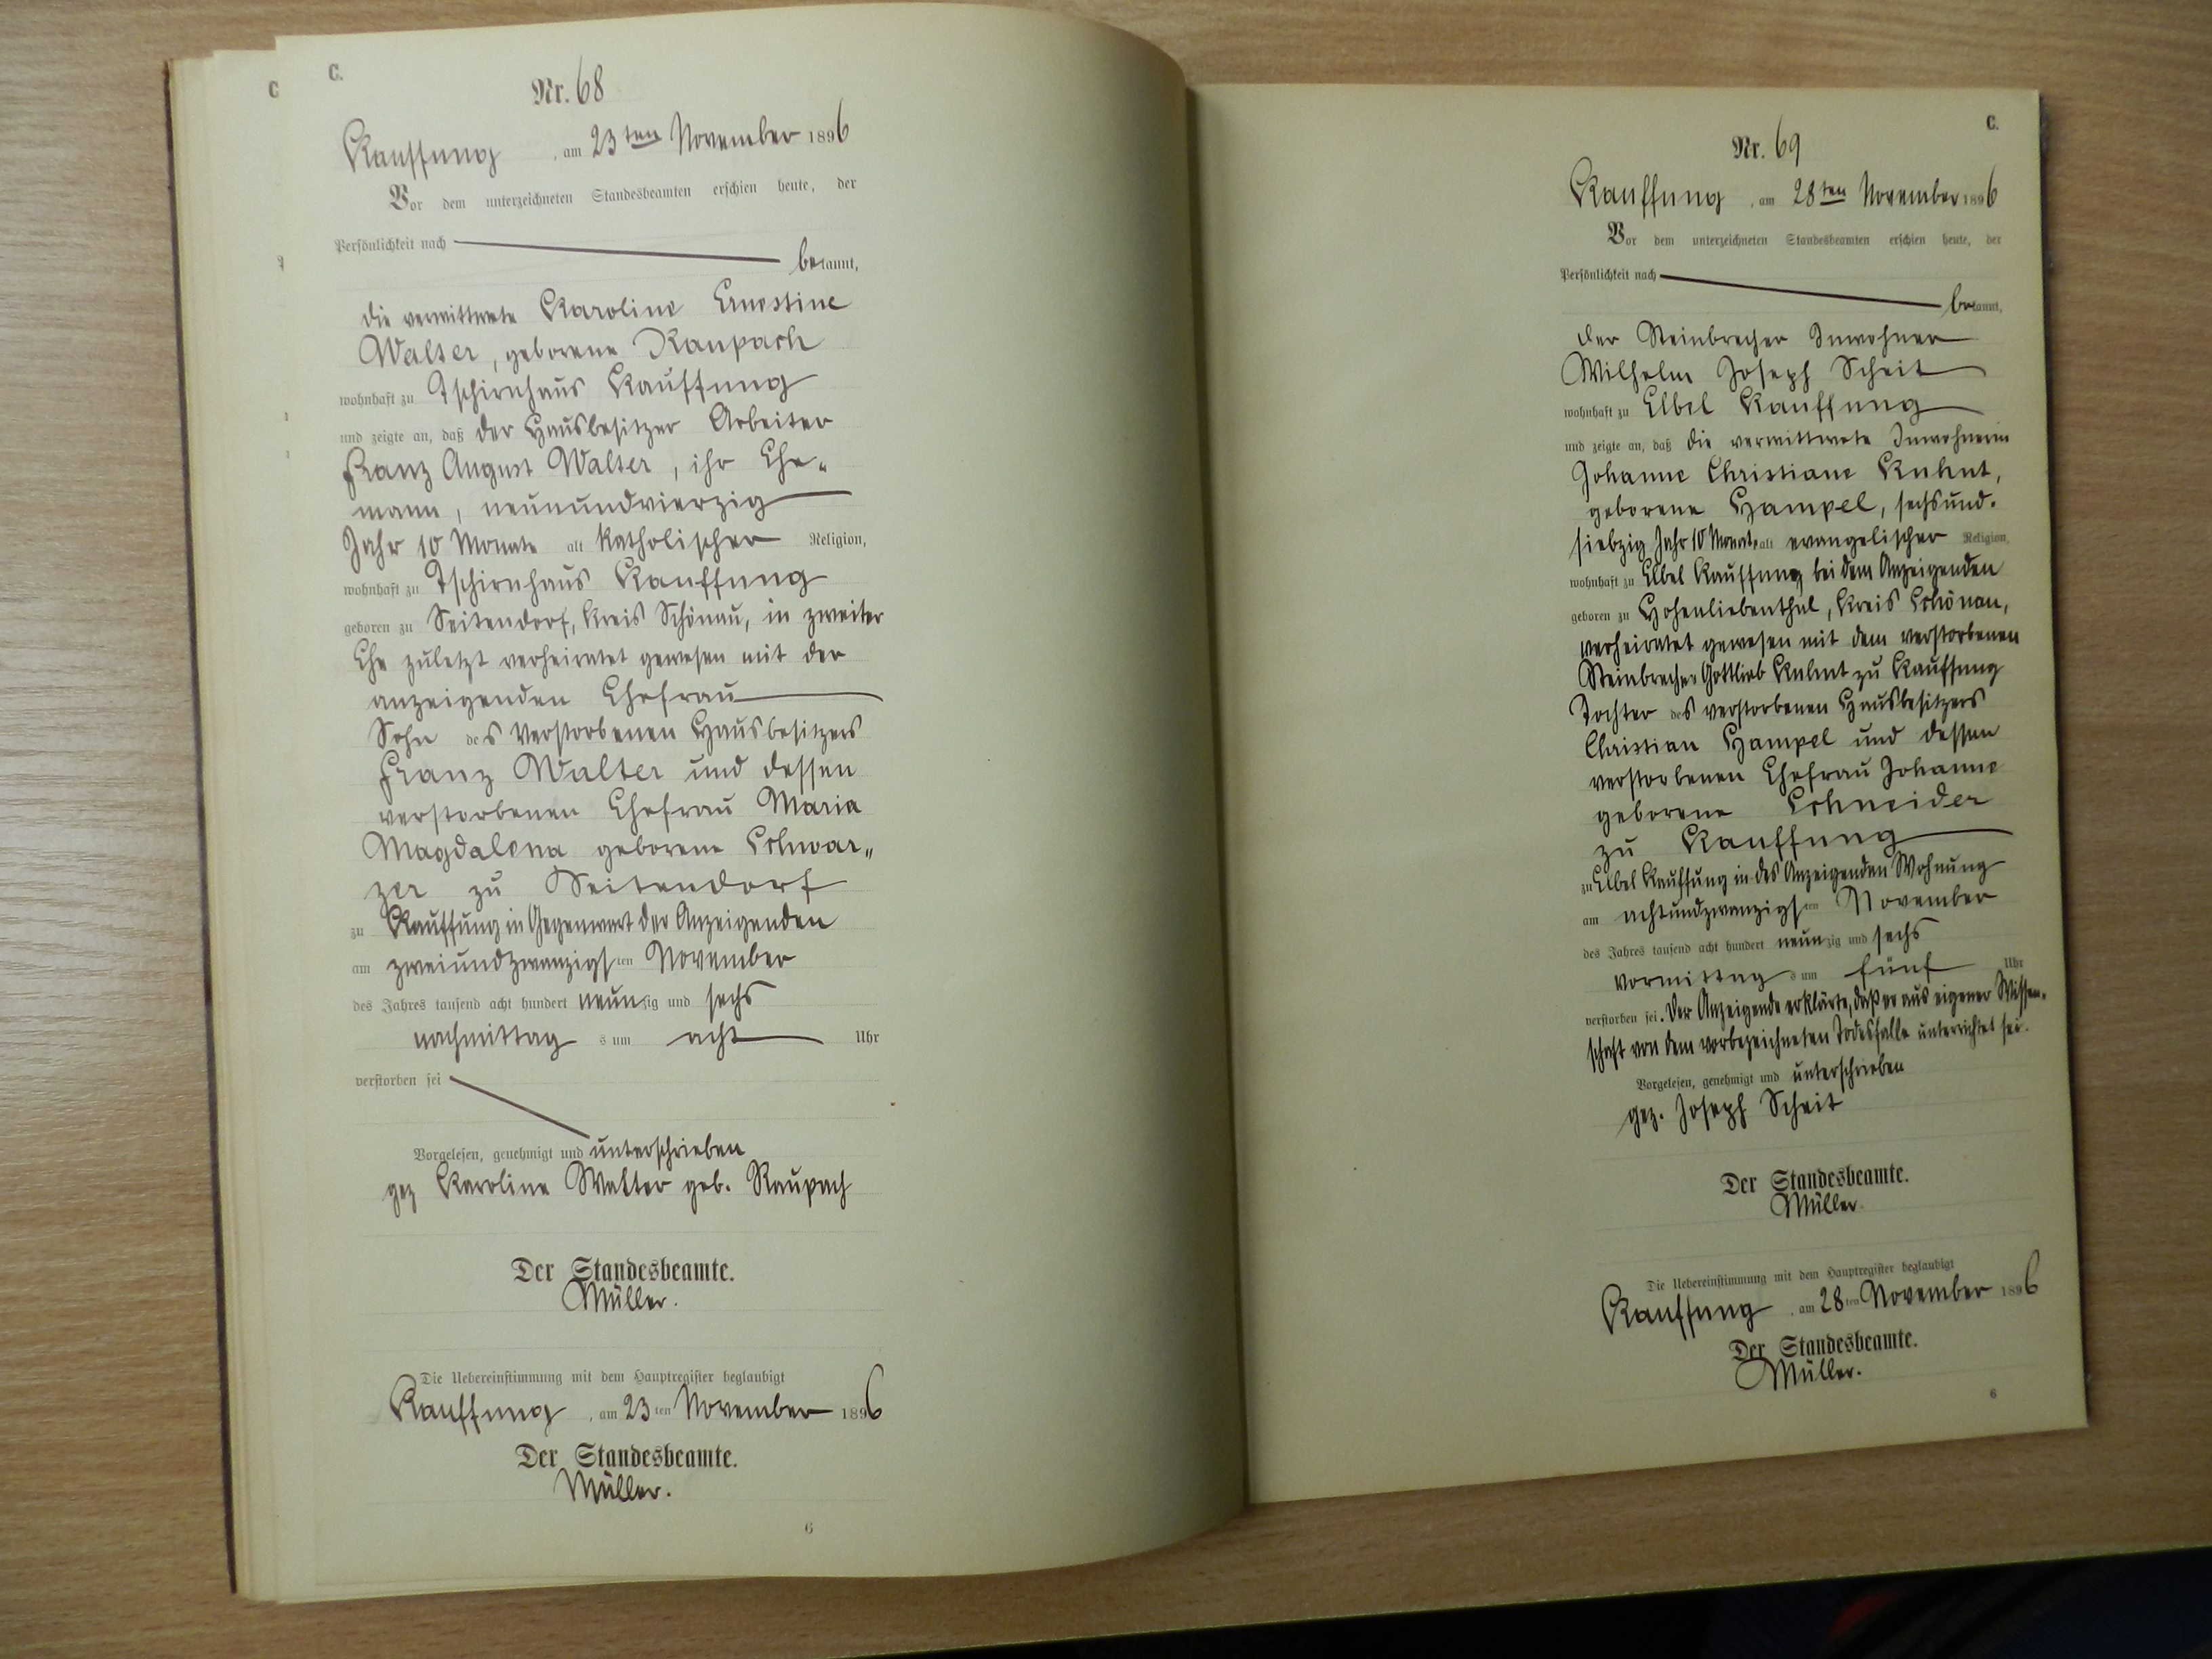 C.
C.
Nr. 68
Kauffung, am 23ten November 1896
Vor dem unterzeichneten Standesbeamten erschien heute, der
Persönlichkeit nach
bekannt,
die verwittwete Karoline Ernestine
Walter, geborene Raupach
wohnhaft zu Tschirnhaus Kauffung
und zeigte an, daß der Hausbesitzer Arbeiter
Franz August Walter, ihr Ehe-
mann, neunundvierzig
Jahr 10 Monate alt katholischer Religion,
wohnhaft zu Tschirnhaus Kauffung
geboren zu Seitendorf, Kreis Schönau, in zweiter
Ehe zuletzt verheiratet gewesen mit der
anzeigenden Ehefrau
Sohn des verstorbenen Hausbesitzers
Franz Walter und dessen
verstorbenen Ehefrau Maria
Magdalena geborene Schwar„
zer zu Seitendorf
zu Kauffung in Gegenwart der Anzeigenden
am zweiundzwanzigsten November
des Jahres tausend acht hundert neunzig und sechs
nachmittags um acht Uhr
verstorben sei
Vorgelesen, genehmigt und unterschrieben
gez Karoline Walter geb. Raupach
Der Standesbeamte.
Müller.
Die Uebereinstimmung mit dem Hauptregister beglaubigt
Kauffung, am 23ten November 1896
Der Standesbeamte.
Müller.
6
C.
Nr. 69
Kauffung, am 28ten November 1896
Vor dem unterzeichneten Standesbeamten erschien heute, der
Persönlichkeit nach
bekannt,
der Steinbrecher Inwohner
Wilhelm Joseph Scheit
wohnhaft zu Elbel Kauffung
und zeigte an, daß die verwittwete Inwohnerin
Johanne Christiane Kuhnt,
geborene Hampel, sechsund-
siebzig Jahr 10 Monate alt evangelischer Religion,
wohnhaft zu Elbel Kauffung bei dem Anzeigenden
geboren zu Hohenliebenthal, Kreis Schönau,
verheiratet gewesen mit dem verstorbenen
Steinbrecher Gottlieb Kuhnt zu Kauffung
Tochter des verstorbenen Hausbesitzers
Christian Hampel und dessen
verstorbenen Ehefrau Johanne
geborene Schneider
zu Kauffung
zu Elbel Kauffung in des Anzeigenden Wohnung
am achtundzwanzigsten November
des Jahres tausend acht hundert neunzig und sechs
vormittags um fünf Uhr
verstorben sei. Der Anzeigende erklärte, daß er aus eigener Wissen-
schaft von dem vorbezeichneten Todesfalle unterrichtet sei.
Vorgelesen, genehmigt und unterschrieben
gez. Joseph Scheit
Der Standesbeamte.
Müller.
Die Uebereinstimmung mit dem Hauptregister beglaubigt
Kauffung, am 28ten November 1896
Der Standesbeamte.
Müller.
6